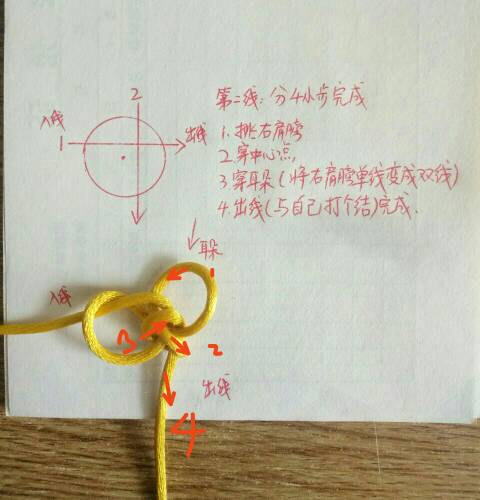 2
第二线:分4小步完成
入线
出线
1
1.挑右肩膀
2.穿中心点,
3穿耳朵(将右肩膀单线变成双线)
4.出线(与自己打个结)完成.
耳朵
入线
1
3
2
出线
4